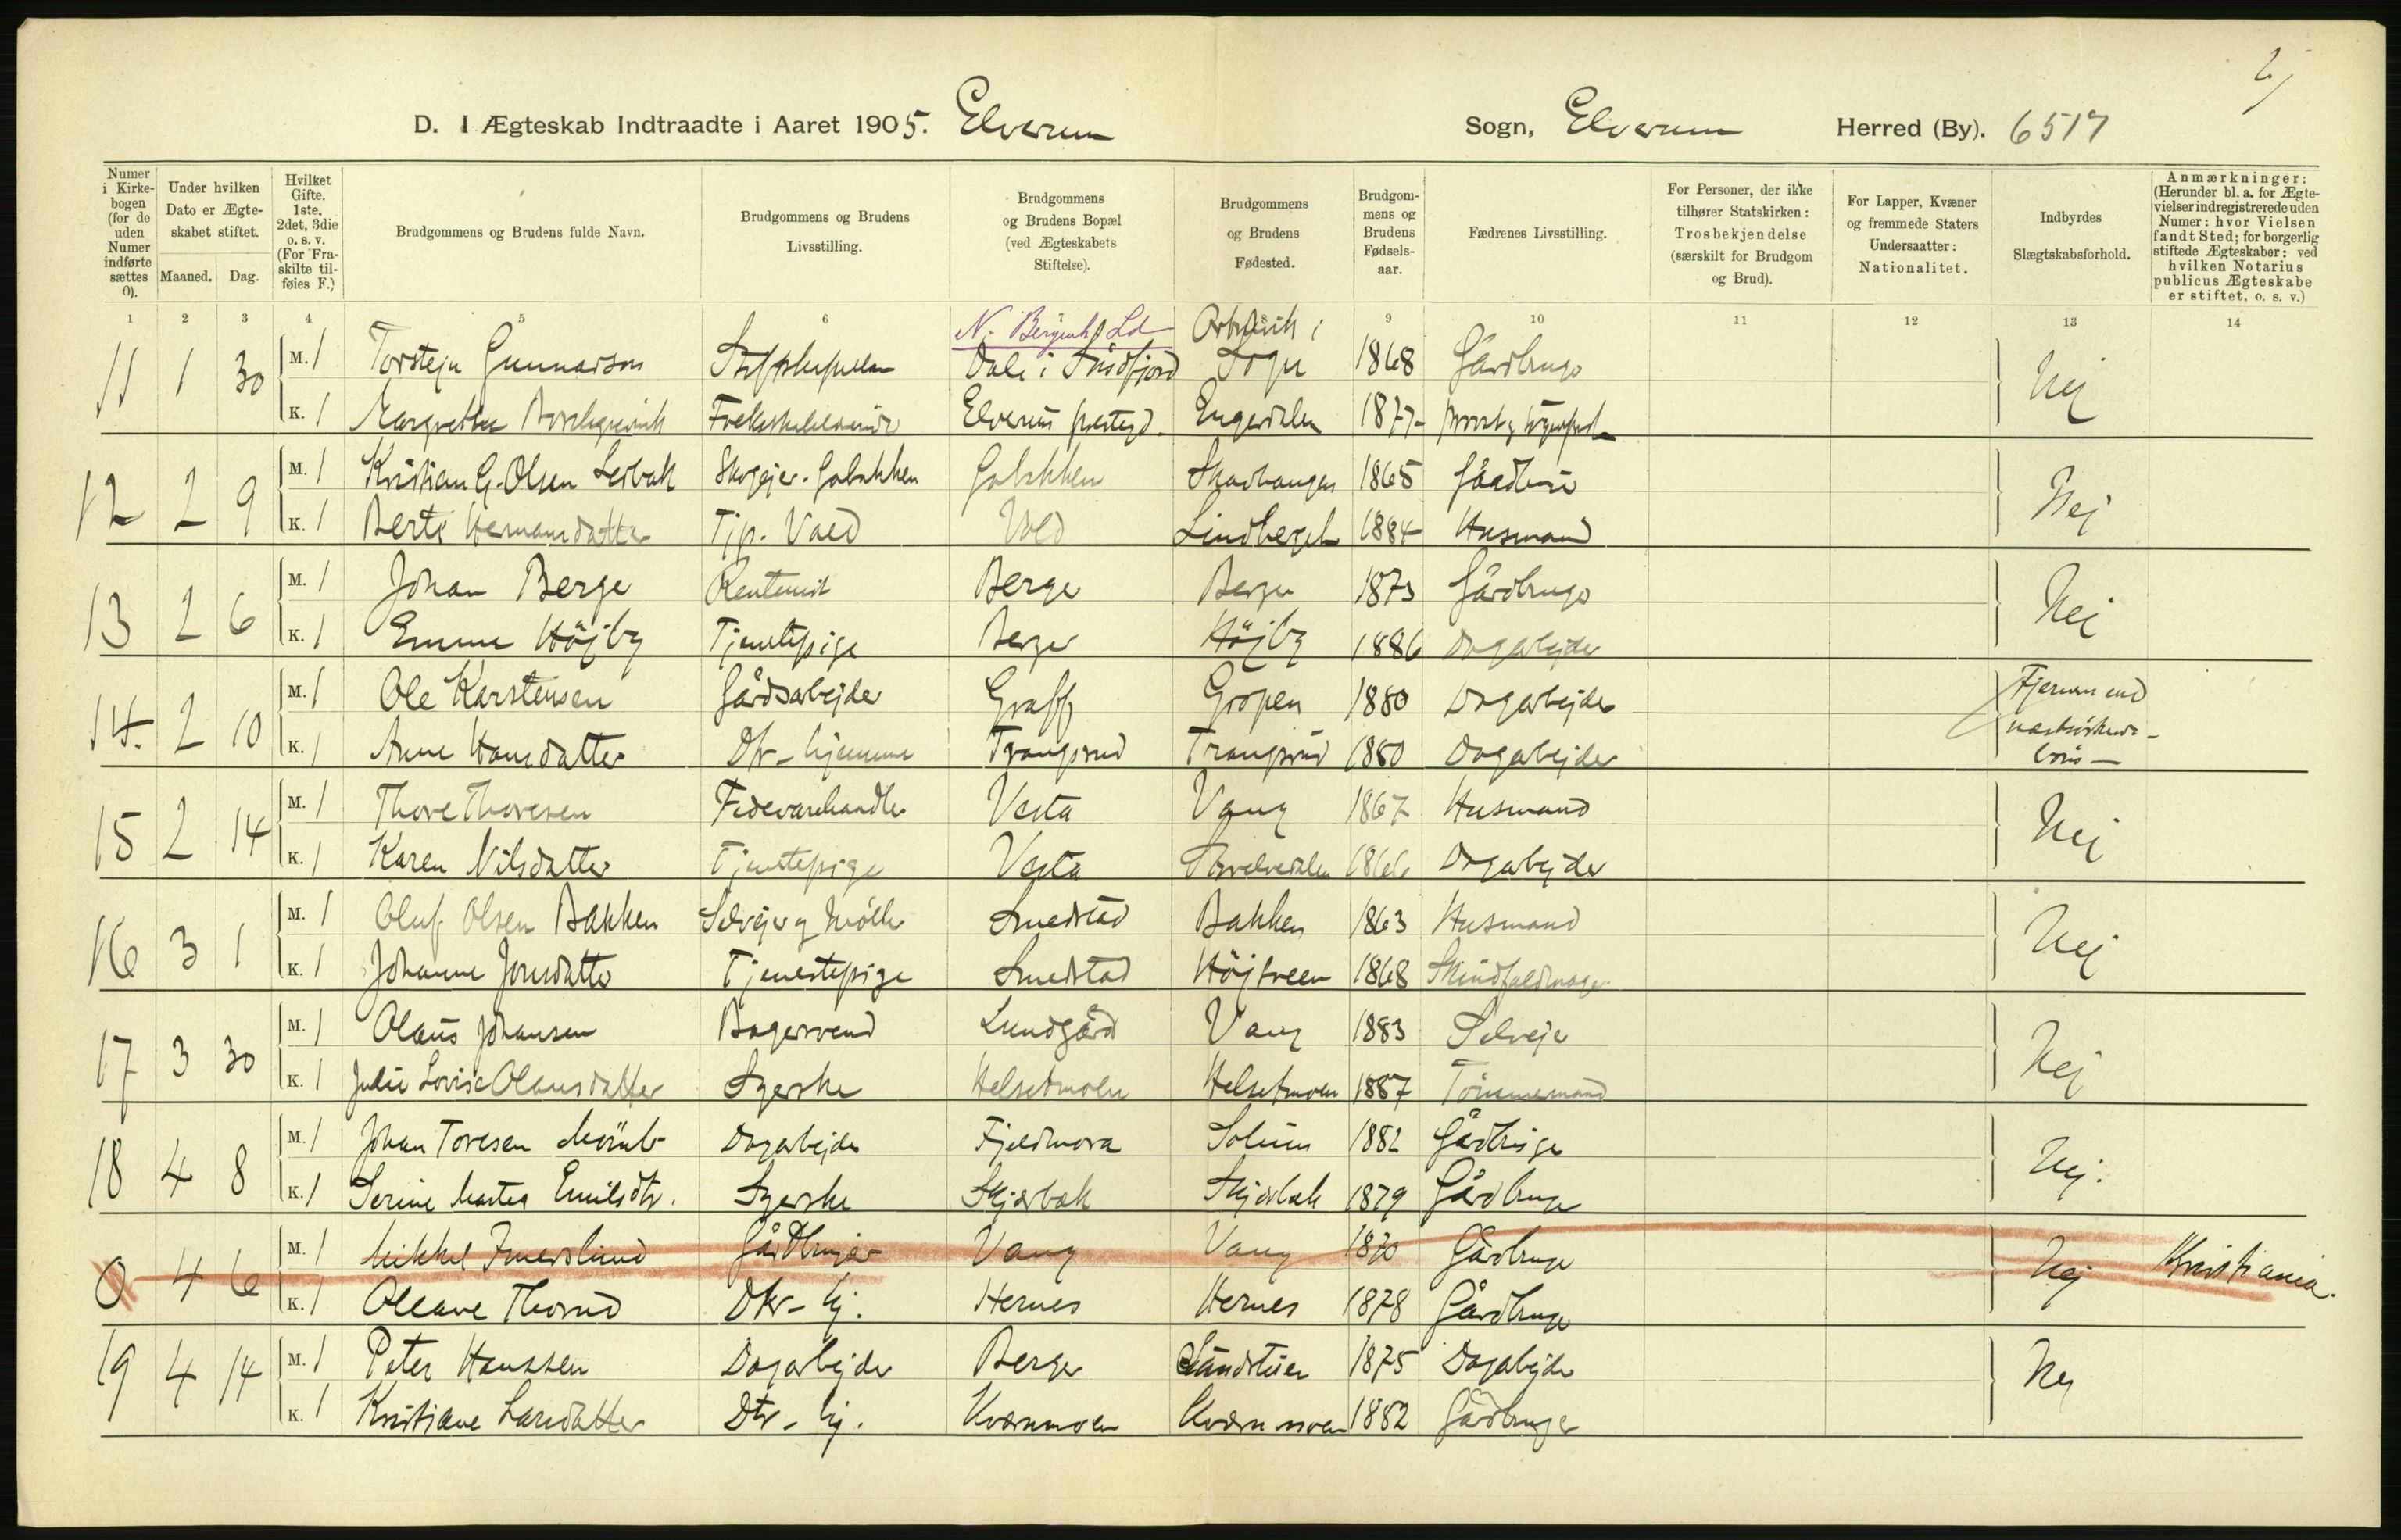 D. I Ægteskab Indtraadte i Aaret 1905. Elverum Sogn, Elverum Herred (By). 6517
Numer i Kirkebogen (for de uden Numer indførte sættes 0).
Under hvilken Dato er Ægteskabet stiftet.
Maaned. Dag.
Hvilket Gifte. 1ste, 2det, 3die o. s. v. (For Fraskilte tilføies F.)
Brudgommens og Brudens fulde Navn.
Brudgommens og Brudens Livsstilling.
Brudgommens og Brudens Bopæl (ved Ægteskabets Stiftelse).
Brudgommens og Brudens Fødested.
Brudgommens og Brudens Fødselsaar.
Fædrenes Livsstilling.
For Personer, der ikke tilhører Statskirken: Trosbekjendelse (særskilt for Brudgom og Brud).
For Lapper, Kvæner og fremmede Staters Undersaatter: Nationalitet.
Indbyrdes Slægtskabsforhold.
Anmærkninger: (Herunder bl. a. for Ægtevielser indregistrerede uden Numer: hvor Vielsen fandt Sted; for borgerlig stiftede Ægteskaber: ved hvilken Notarius publicus Ægteskabe er stiftet, o. s. v.)
1 2 3 4 5 6 7 8 9 10 11 12 13 14
11 1 30 M. 1 Torstejn Gunnarson Dale i Sogn 1868 Gårdbruger Nej
K. 1 Margrethe Elverum prestegd. Engerdalen 1877
12 2 9 M. 1 Kristian G. Olsen Lesbak 1865 Nej
K. 1 Berte Hermansdatter Tjp. Vold Vold Lindberget 1884 Husmand
13 2 6 M. 1 Johan Berge Rentenist Berge Berge 1873 Gårdbruger Nej
K. 1 Emma Højby Tjenestepige Berge Højby 1886 Dagarbejder
14. 2 10 M. 1 Ole Karstensen Gårdsarbejder Graff Gropen 1880 Dagarbejder Fjernere end
K. 1 Anne Hansdatter Dtr. hjemme Trangsrud Trangsrud 1880 Dagarbejder næstsøskende-
børn
15 2 14 M. 1 Thore Thoresen Fedevarehandler Vesta Vang 1867 Husmand Nej
K. 1 Karen Nilsdatter Tjenestepige Vesta 1866 Dagarbejder
16 3 1 M. 1 Oluf Olsen Bakken Selvejer og Møller Smedstad Bakken 1863 Husmand Nej
K. 1 Johanne Jonsdatter Tjenestepige Smedstad 1868 Skindfeldmager
17 3 30 M. 1 Olaus Johansen Bagersvend Lundgård Vang 1883 Selvejer Nej
K. 1 Julie Lovise Olausdatter Syerske Helsetmoen Helsetmoen 1887 Tømmermand
18 4 8 M. 1 Johan Toresen Dagarbejder Fjeldmora Solum 1882 Gårdbruger Nej.
K. 1 Serine Martea Emilsdtr. Syerske Skjærbæk Skjærbæk 1879 Gårdbruger
0 4 6 M. 1 Mikkel Imerslund Gårdbruger Vang Vang 1870 Gårdbruger Nej Kristiania.
K. 1 Oleane Thorud Dtr. hj. Hernes Hernes 1878 Gårdbruger
19 4 14 M. 1 Peter Hanssen Dagarbejder Berger Sandstuen 1875 Dagarbejder Nej
K. 1 Kristiane Larsdatter Dtr. hj. Kvernmoen Kvernmoen 1882 Gårdbruger